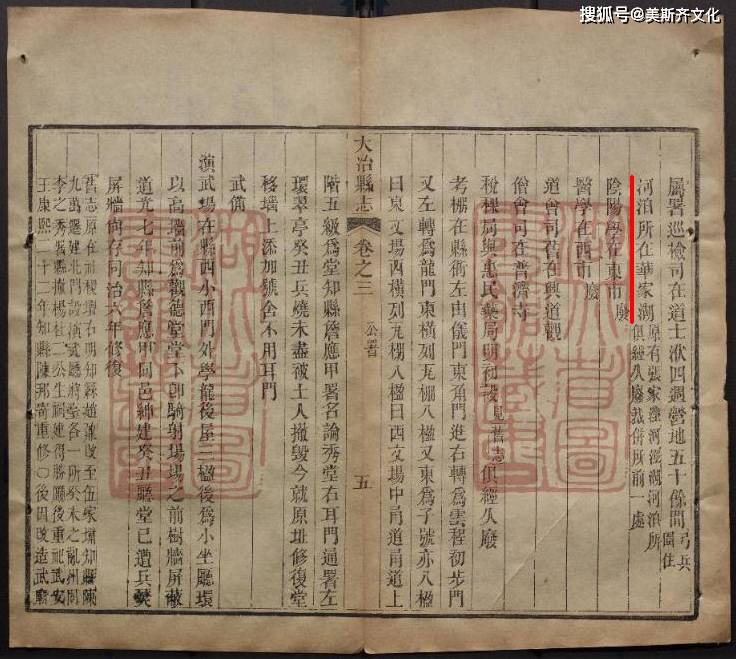 搜狐号@美斯齐文化
屬署巡檢司在道士洑四週營地五十餘間弓兵圜住
河泊所在華家湖原有張家塘河涇湖河泊所俱經久廢裁併所前一處
陰陽學在東市廢
醫學在西市廢
道會司舊在興道觀
僧會司在普濟寺
稅課局與惠民藥局明初設見舊志俱經久廢
考棚在縣衙左由儀門東角門進右轉爲雲程初步門
又左轉爲龍門東橫列瓦棚八楹又東爲子號亦八楹
曰東文場西橫列瓦棚八楹曰西文場中甬道甬道上
大冶縣志
卷之三
公署
五
階五級爲堂知縣詹應甲署名論秀堂右耳門通署左
環翠亭癸丑兵燒未盡被土人撤毀今就原址修復堂
移墻上添加號舍不用耳門
武備
演武場在縣西小西門外學龍後屋三楹後爲小坐廳環
以高墻前爲觀德堂堂下即騎射場場之前樹牆屏蔽
道光七年知縣詹應甲同邑紳建癸丑廳堂已遭兵燹
屏牆尚存同治六年修復
舊志原在社稷壇右明知縣趙鼐改至伍家墳知縣陳
九萬遷建北門設演武廳將堂各一所癸未之亂州同
李之秀署縣撤楊杜二公生祠建得勝廳後重祀武安
王康熙二十二年知縣陳邦寄重修〇後因改造武廟